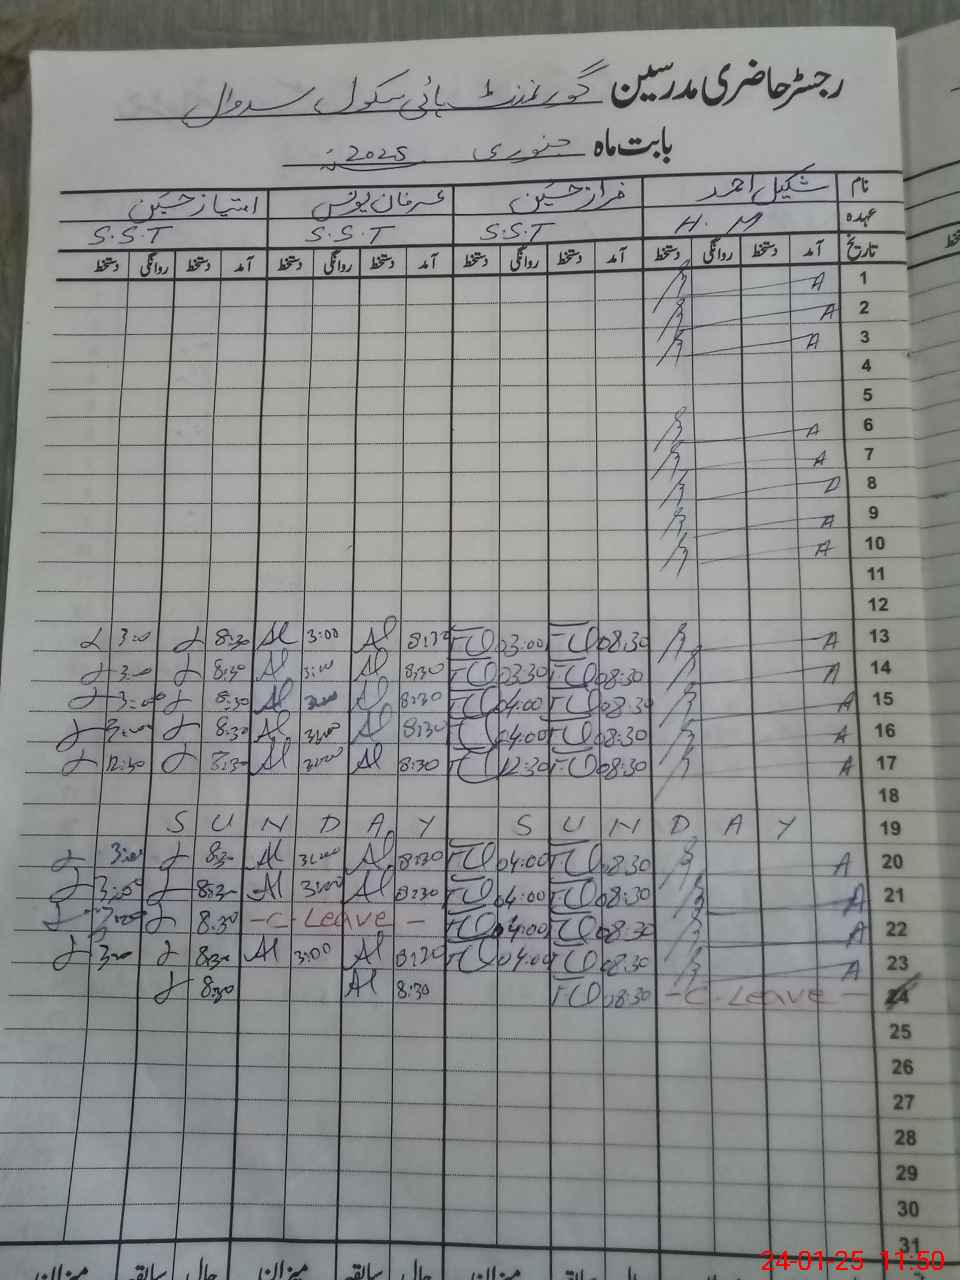 رجسٹر حاضری مدرسین گورنمنٹ ہائی سکول سدوال
بابت ماہ جنوری 2025
نام شکیل احمد فراز حسین عرفان یونس امتیاز حسین
عہدہ H.M S.S.T S.S.T S.S.T
تاریخ آمد دستخط روانگی دستخط آمد دستخط روانگی دستخط آمد دستخط روانگی دستخط آمد دستخط روانگی دستخط
1 A
2 A
3 A
4
5
6 A
7 A
8
9 A
10 A
11
12
13 A 08:30 03:00 8:30 Al 3:00 Al 8:30 3:00
14 A 08:30 03:30 8:30 Al 3:00 Al 8:30 3:00
15 A 08:30 04:00 8:30 Al Al 8:30 3:00
16 A 08:30 04:00 8:30 Al 3:00 Al 8:30 3:00
17 A 08:30 12:30 8:30 Al 3:00 Al 8:30 12:30
18
19 SUNDAY SUNDAY
20 A 08:30 04:00 8:30 Al 3:00 Al 8:30 3:00
21 A 08:30 04:00 8:30 Al 3:00 Al 8:30 3:00
22 A 08:30 04:00 -C-Leave- 8:30 3:00
23 A 08:30 04:00 8:30 Al 3:00 Al 8:30 3:00
24 -C-Leave- 08:30 8:30 Al 8:30
25
26
27
28
29
30
31
حال سابقہ میزان حال سابقہ میزان
24-01-25 11:50